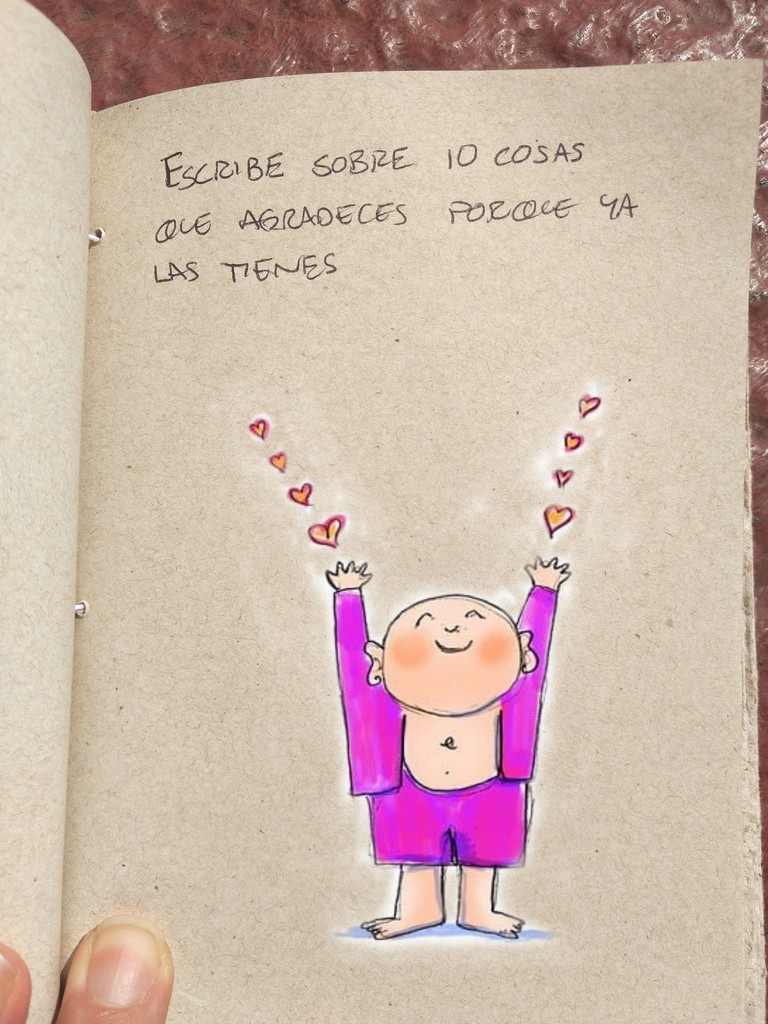 ESCRIBE SOBRE 10 COSAS
QUE AGRADECES PORQUE YA
LAS TIENES